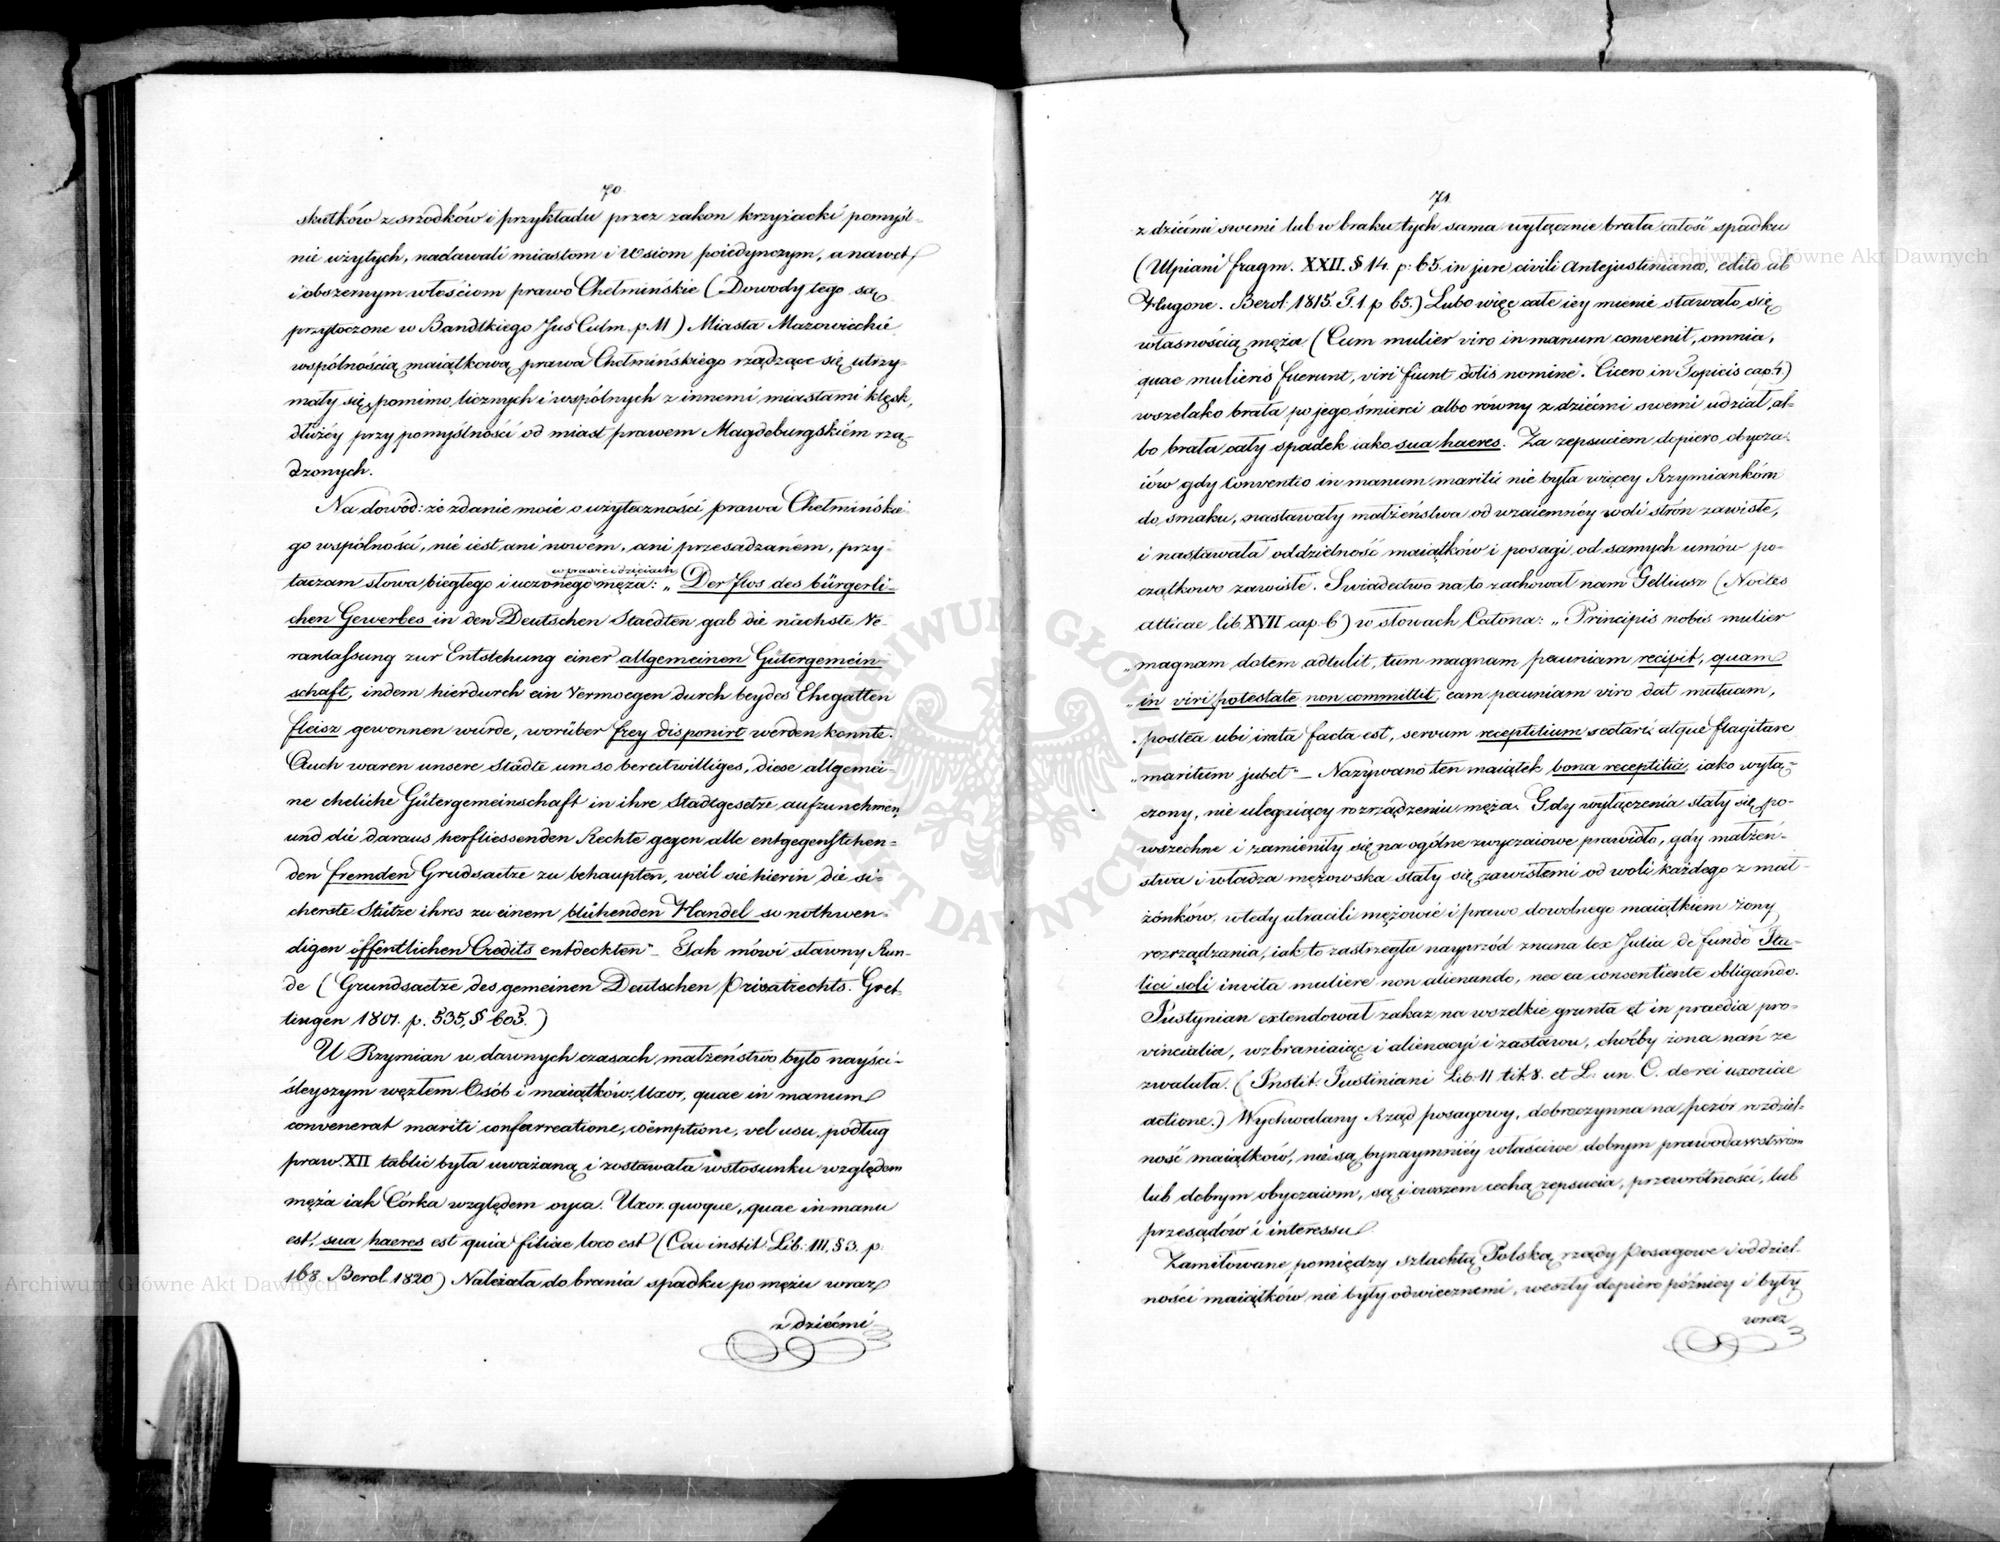 70.
skutków z srzodków i przykładu przez zakon krzyżacki pomyśl-
nie użytych, nadawali miastom i Wsiom poiedynczym, a nawet
i obszernym włościom prawo Chełmińskie (Dowody tego są
przytoczone w Bandtkiego Jus Culm. p. 11) Miasta Mazowieckie
wspólnością maiątkową prawa Chełmińskiego rządzące się utrzy-
mały się, pomimo licznych i wspólnych z innemi miastami klęsk,
dłużey przy pomyślności od miast prawem Magdeburgskiém rzą-
dzonych.
Na dowód: że zdanie moie o użyteczności prawa Chełmińskie-
go wspólności, nie iest ani nowém, ani przesadzaném, przy-
w prawie i dzieiach
taczam słowa biegłego i uczonego męża: „Der Flos des bürgerli-
chen Gewerbes in den Deutschen Staedten gab die nächste Ve-
ranlassung zur Entstehung einer allgemeinen Gütergemein-
schaft, indem hierdurch ein Vermoegen durch beydes Ehegatten
fleisz gewonnen wurde, worüber frey disponirt werden konnte.
Auch waren unsere Städte um so bereitwilliges, diese allgemei-
ne eheliche Gütergemeinschaft in ihre Stadtgesetze aufzunehmen,
und die daraus herfliessenden Rechte gegen alle entgegenstehen-
den fremden Grudsaetze zu behaupten, weil sie hierin die si-
cherste Stütze ihres zu einem blühenden Handel so nothwen-
digen öffentlichen Credits entdeckten" – Tak mówi sławny Run-
de (Grundsaetze des gemeinen Deutschen Privatrechts. Goet-
tingen 1801. p. 535, § 603.)
U Rzymian w dawnych czasach, małżeństwo było nayści-
śleyszym węzłem Osób i maiątków, Uxor, quae in manum
convenerat mariti confarreatione, coëmptione, vel usu, podług
praw XII tablic była uważaną i zostawała w stosunku względem
męża iak Córka względem oyca. Uxor quoque, quae in manu
est, sua haeres est quia filiae loco est (Cai instit. Lib. III, § 3. p.
168. Berol. 1820) Należała do brania spadku po mężu wraz
z dziećmi
71.
z dziećmi swemi lub w braku tych sama wyłącznie brała całość spadku
(Ulpiani fragm. XXII. § 14. p: 65. in jure civili Antejustinianeo, edito ab
Hugone. Berol. 1815. T. 1 p 65.) Lubo więc całe iey mienie stawało się
własnością męża (Cum mulier viro in manum convenit, omnia,
quae mulieris fuerunt, viri fiunt dotis nomine. Cicero in Topicis cap. 4)
wszelako brała po jego śmierci albo równy z dziećmi swemi udział, al-
bo brała cały spadek iako sua haeres. Za zepsuciem dopiero obycza-
iów gdy Conventio in manum maritii nie była więcey Rzymiankóm
do smaku, nastawały małżeństwa od wzaiemnéy woli strón zawisłe,
i nastawała oddzielność maiątków i posagi od samych umów po-
czątkowo zawisłe. Swiadectwo na to zachował nam Gelliusz (Noctes
atticae lib. XVII cap. 6) w słowach Catona: „Principis nobis mulier
„magnam dotem adtulit, tum magnam pecuniam recipit, quam
„in viri potestate non committit, eam pecuniam viro dat mutuam,
„postea ubi irata facta est, servum receptitium sectari, atque flagitare
„maritum jubet" – Nazywano ten maiątek bona receptitia, iako wyłą-
czony, nie ulegaiący rozrządzeniu męża. Gdy wyłączenia stały się po-
wszechne i zamieniły się na ogólne zwyczaiowe prawidło, gdy małżeń-
stwa i władza mężowska stały się zawisłemi od woli każdego z mał-
żónków, wtedy utracili mężowie i prawo dowolnego maiątkiem żony
rozrządzania, iak to zastrzegła nayprzód znana lex Julia de fundo Ita-
lici soli invita muliere non alienando, nec ea consentiente obligando.
Justynian extendował zakaz na wszelkie grunta et in praedia pro-
vincialia, wzbraniaiąc i alienacyi i zastawu, choćby żona nań ze
zwalała. (Instit. Justiniani Lib. II tit. 8. et L. un. C. de rei uxoriae
actione.) Wychwalany Rząd posagowy, dobroczynna na pozór rozdziel-
ność maiątków, nie są bynaymniéy właściwe dobrym prawodawstwom
lub dobrym obyczaiom, są i owszem cechą zepsucia, przewrótności, lub
przesądów i interessu
Zamiłowane pomiędzy szlachtą Polską rządy Posagowe i oddziel-
ności maiątków nie były odwiecznemi, weszły dopiero późniey i były
wraz
Archiwum Główne Akt Dawnych
Archiwum Główne Akt Dawnych
ARCHIWUM GŁÓWNE AKT DAWNYCH